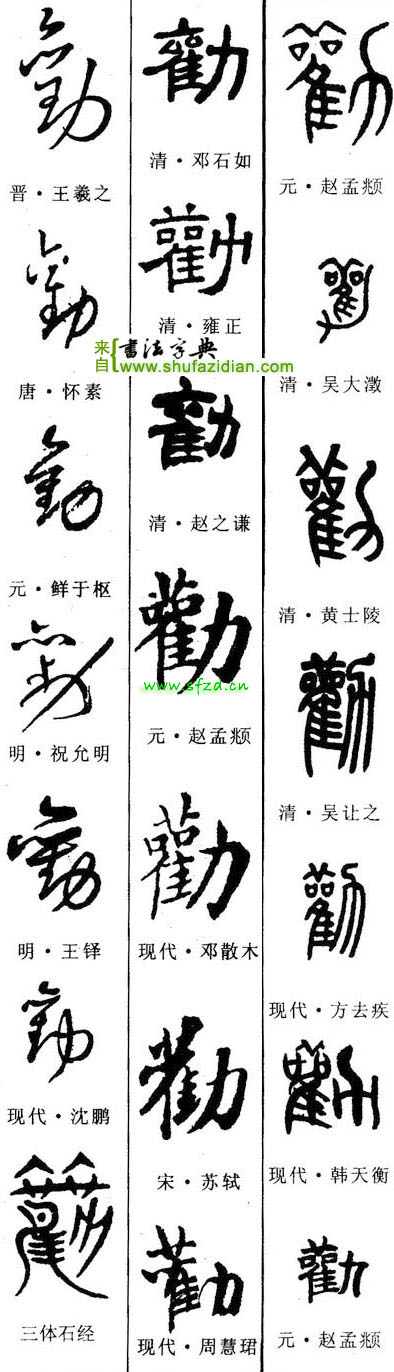 勸
晋·王羲之
勸
唐·怀素
勸
元·鲜于枢
勸
明·祝允明
勸
明·王铎
勸
现代·沈鹏
勸
三体石经
勸
清·邓石如
勸
清·雍正
来自{书法字典
www.shufazidian.com
勸
清·赵之谦
勸
www.sfzd.cn
元·赵孟頫
勸
现代·邓散木
勸
宋·苏轼
勸
现代·周慧珺
勸
元·赵孟頫
勸
清·吴大澂
勸
清·黄士陵
勸
清·吴让之
勸
现代·方去疾
勸
现代·韩天衡
勸
元·赵孟頫